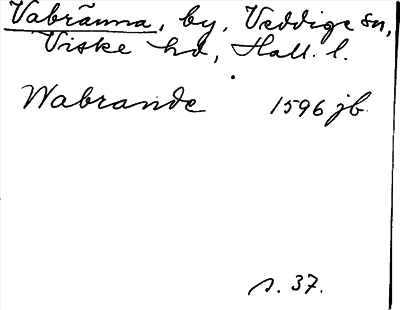 Vabränna, by, Veddige sn,
Viske hd, Hall. l.
Wabrande 1596 jb
s. 37.